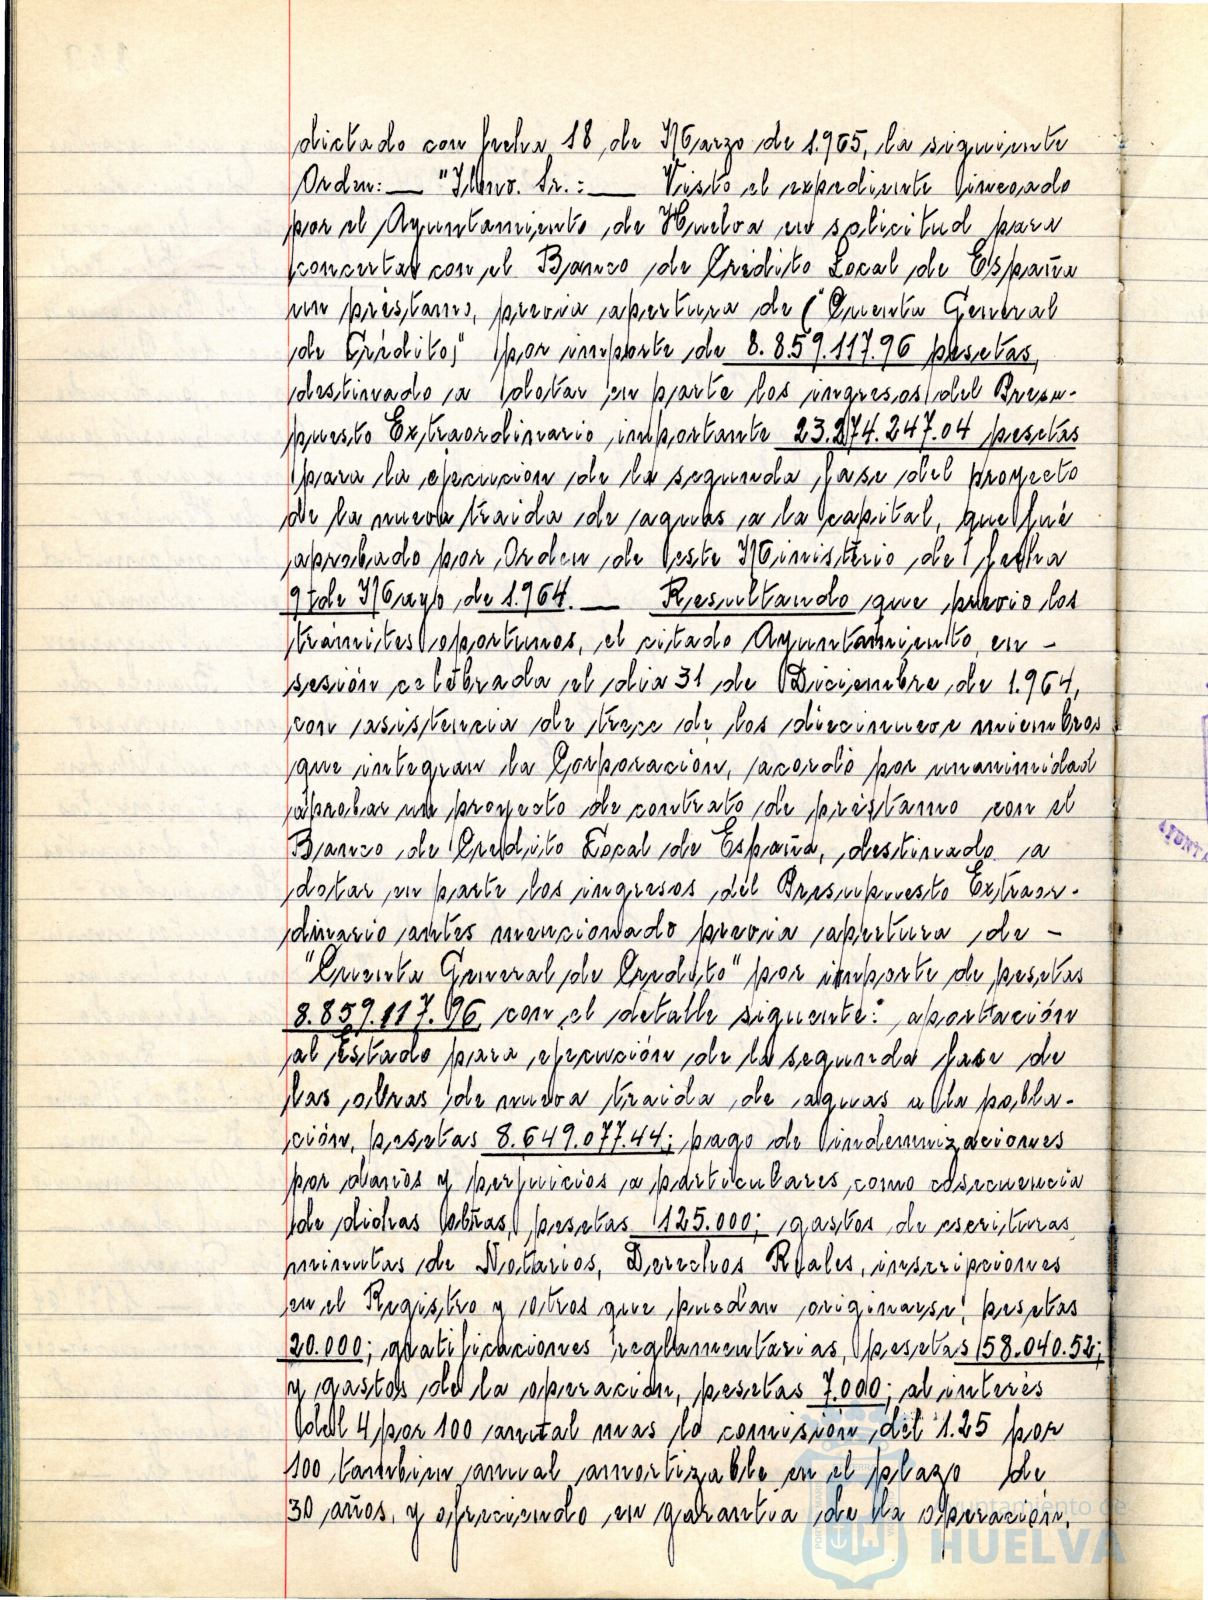 dictado con fecha 18 de Marzo de 1.965, la siguiente
Orden: — "Ilmo. Sr.: — Visto el expediente incoado
por el Ayuntamiento de Huelva en solicitud para
concertar con el Banco de Crédito Local de España
un préstamo, previa apertura de ("Cuenta General
de Crédito," por importe de 8.859.117.96 pesetas,
destinado a dotar en parte los ingresos del Presu-
puesto Extraordinario importante 23.274.247.04 pesetas
para la ejecucion de la segunda fase del proyecto
de la nueva traida de aguas a la capital, que fué
aprobado por Orden de este Ministerio de fecha
9 de Mayo de 1.964. — Resultando que previo los
trámites oportunos, el citado Ayuntamiento, en -
sesión celebrada el dia 31 de Diciembre de 1.964,
con asistencia de trece de los diecinueve miembros
que integran la Corporación, acordó por unanimidad
aprobar un proyecto de contrato de préstamo con el
Banco de Credito Local de España, destinado a
dotar en parte los ingresos del Presupuesto Extraor-
dinario antes mencionado previa apertura de -
"Cuenta General de Credito" por importe de pesetas
8.859.117.96, con el detalle siguente: aportación
al Estado para ejecución de la segunda fase de
las obras de nueva traida de aguas a la pobla-
ción, pesetas 8.649.077.44; pago de indemnizaciones
por daños y perjuicios a particulares como cosecuencia
de dichas obras, pesetas 125.000; gastos de escrituras,
minutas de Notarios, Derechos Reales, inscripciones
en el Registro y otros que puedan originarse, pesetas
20.000; gratificaciones reglamentarias, pesetas 58.040.52;
y gastos de la operación, pesetas 7.000; al interés
del 4 por 100 anual mas la comisión del 1.25 por
100 tambien anual amortizable en el plazo de
30 años, y ofreciendo en garantia de la operación,
Ayuntamiento de
HUELVA